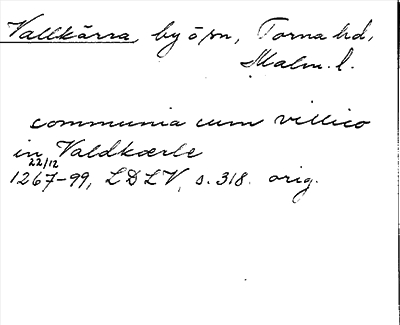 Vallkärra, by ö sn, Torna hd,
Malm. l.
communia cum villico
in Valdkærle
22/12
1267-99, LDLV, s. 318. orig.